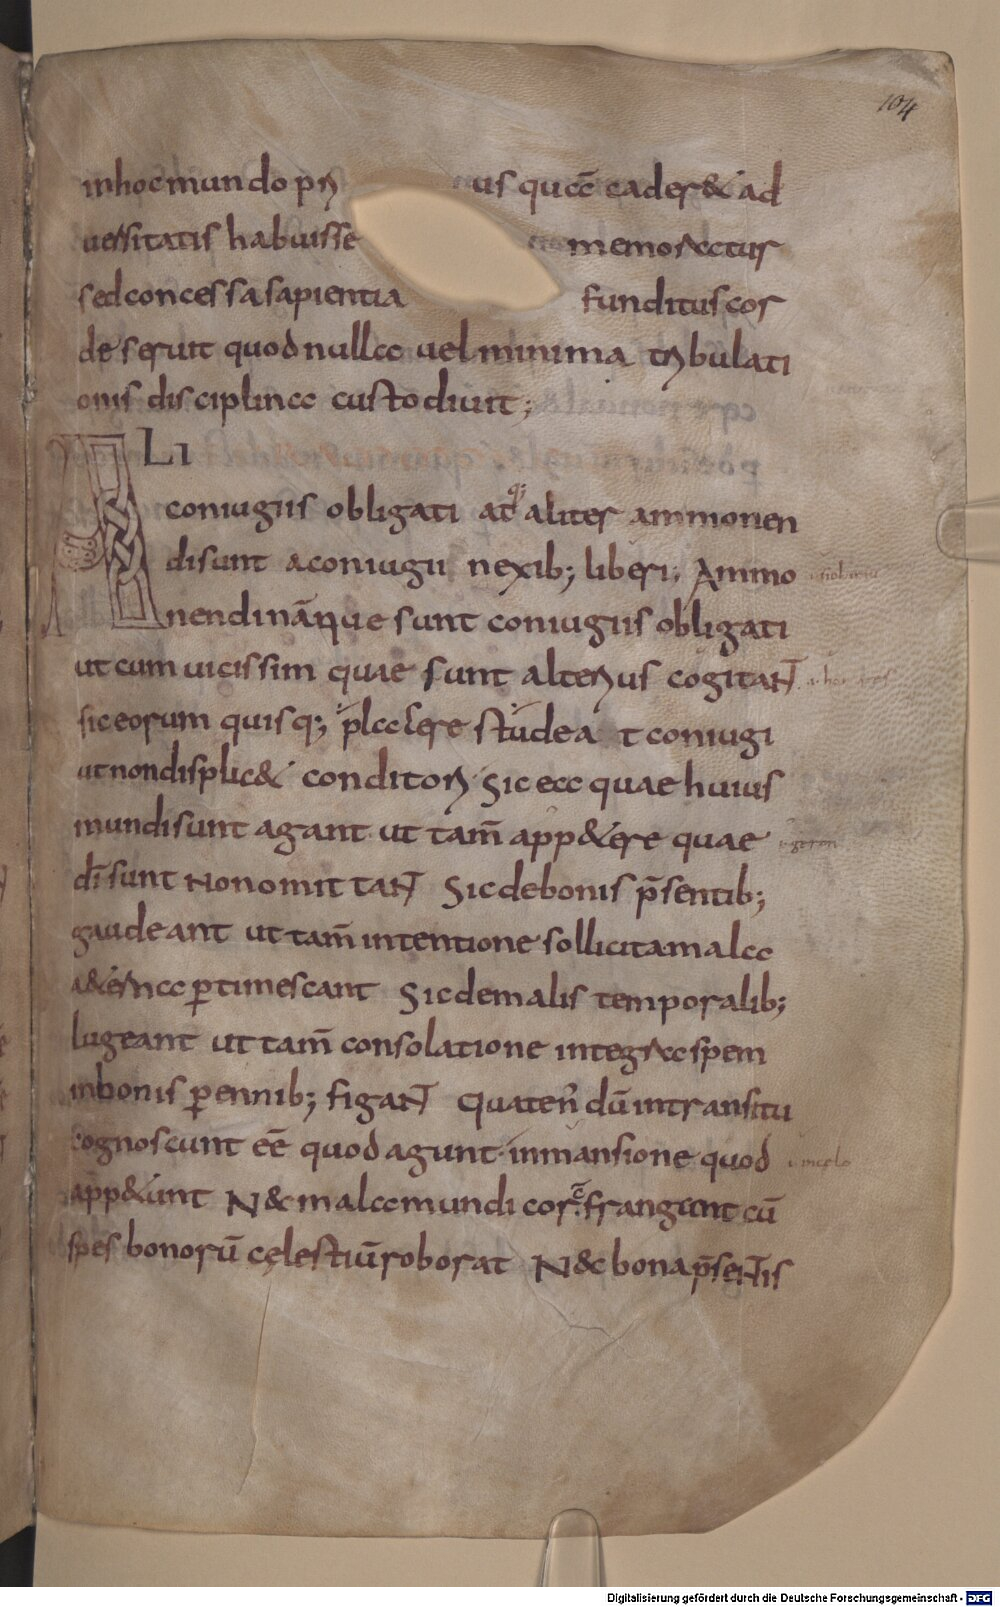 104
in hoc mundo pri us quaē eader& ad
uersitatis habuisse memoratur
sed concessa sapientia funditus cor
deseruit quod nulla uel minima tribulati
onis disciplina custodiuit;
ALI
coniugiis obligati atq; aliter ammonen
di sunt a coniugii nexib; liberi; Ammo
nendi nāque sunt coniugiis obligati
ut cum uicissim quae sunt alterius cogitant
sic eorum quisq; placere studeat coniugi
ut non displic& conditori Sic ea quae huius
mundi sunt agant ut tam̄ app&ere quae
dī sunt non omittant Sic de bonis p̄sentib;
gaudeant ut tam̄ intentione sollicita mala
a&erna ꝑtimescant Sic de malis temporalib;
lugeant ut tam̄ consolatione integra spem
in bonis ꝑennib; figant Quaten̄ dū in transitu
cognoscunt eē quod agunt in mansione quod
app&unt N& mala mundi cor frangant cū
spes bonorū cęlestiū roborat N& bona p̄sentis
Digitalisierung gefördert durch die Deutsche Forschungsgemeinschaft - DFG